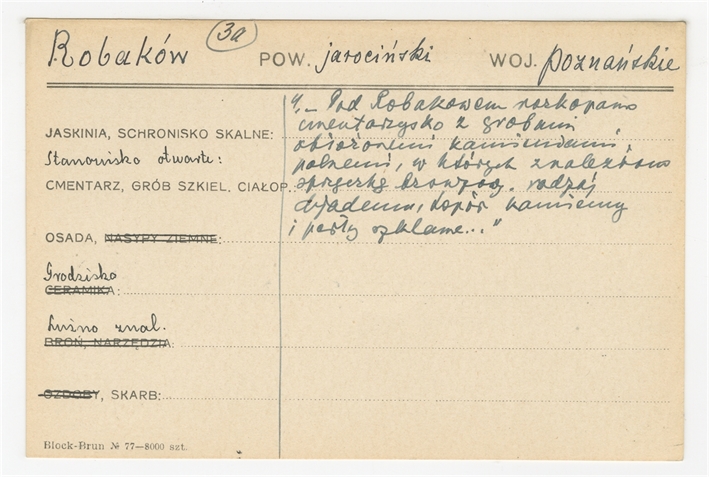 Robaków (3a) POW. jarociński WOJ. poznańskie
„— Pod Robakowem rozkopano
cmentarzysko z grobami
JASKINIA, SCHRONISKO SKALNE: obłożonemi kamieniami
Stanowisko otwarte: polnemi, w których znaleziono
CMENTARZ, GRÓB SZKIEL. CIAŁOP. sprzączkę bronzową, rodzaj
djademu, topór kamienny
OSADA, NASYPY ZIEMNE: i perły szklane..."
Grodzisko
CERAMIKA:
Luźno znal.
BROŃ, NARZĘDZIA:
OZDOBY, SKARB:
Block-Brun № 77—8000 szt.